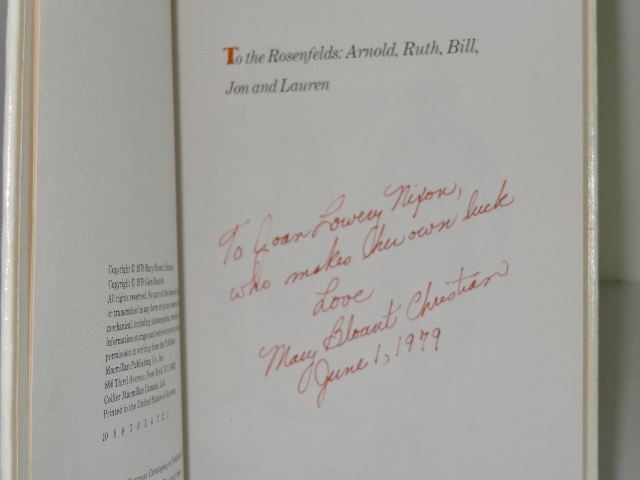 Copyright © 1979 Mary Blount Christian
Copyright © 1979 Glen Rounds
All rights reserved. No part of this book
or transmitted in any form or by any means
mechanical, including photocopying, recording
information storage and retrieval
permission in writing from the Publisher.
Macmillan Publishing Co., Inc.
866 Third Avenue, New York, N.Y. 10022
Collier Macmillan Canada, Ltd.
Printed in the United States of America
10 9 8 7 6 5 4 3 2 1
Congress Cataloging in
To the Rosenfelds: Arnold, Ruth, Bill,
Jon and Lauren
To Joan Lowery Nixon,
who makes her own luck
Love
Mary Blount Christian
June 1, 1979